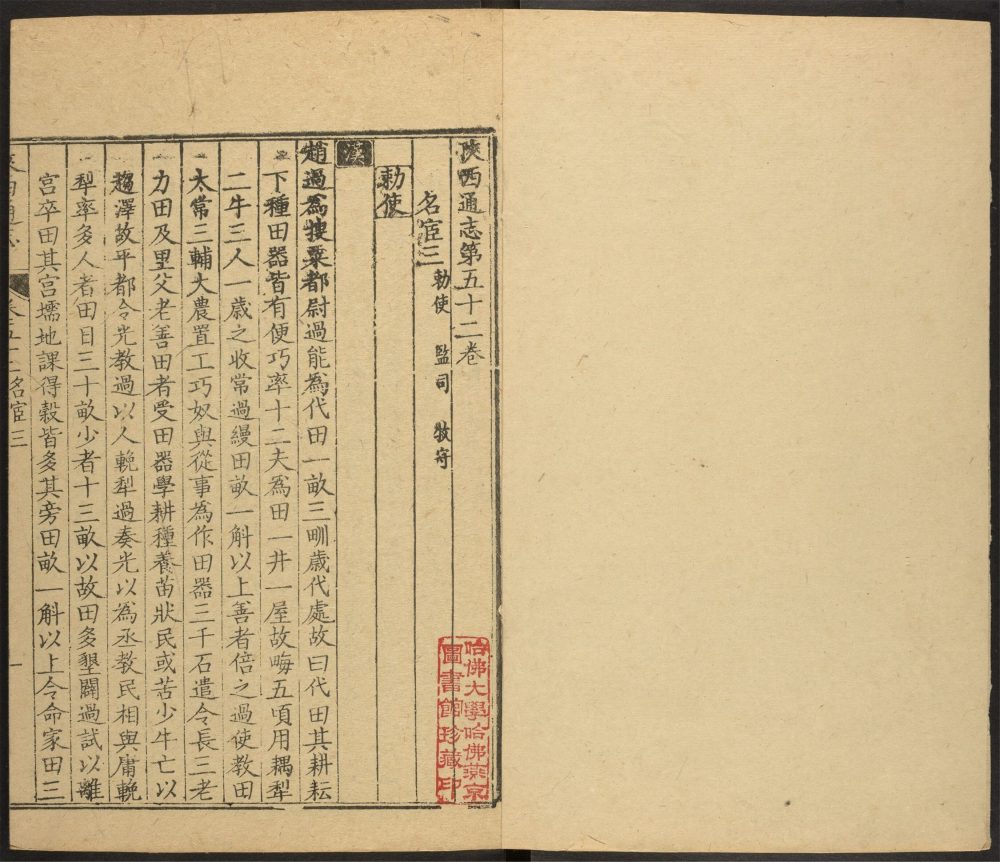 陝西通志第五十二卷
名宦三 勅使 監司 牧守
勅使
漢
趙過為搜粟都尉過能為代田一畝三甽歲代處故曰代田其耕耘
下種田器皆有便巧率十二夫為田一井一屋故晦五頃用耦犁
二牛三人一歲之收常過縵田畝一斛以上善者倍之過使教田
太常三輔大農置工巧奴與從事為作田器三千石遣令長三老
力田及里父老善田者受田器學耕種養苗狀民或苦少牛亡以
趨澤故平都令光教過以人輓犁過奏光以為丞教民相與庸輓
犁率多人者田日三十畝少者十三畝以故田多墾闢過試以離
宮卒田其宮壖地課得穀皆多其旁田畝一斛以上令命家田三
名宦三
一
哈佛大學哈佛燕京
圖書館珍藏印